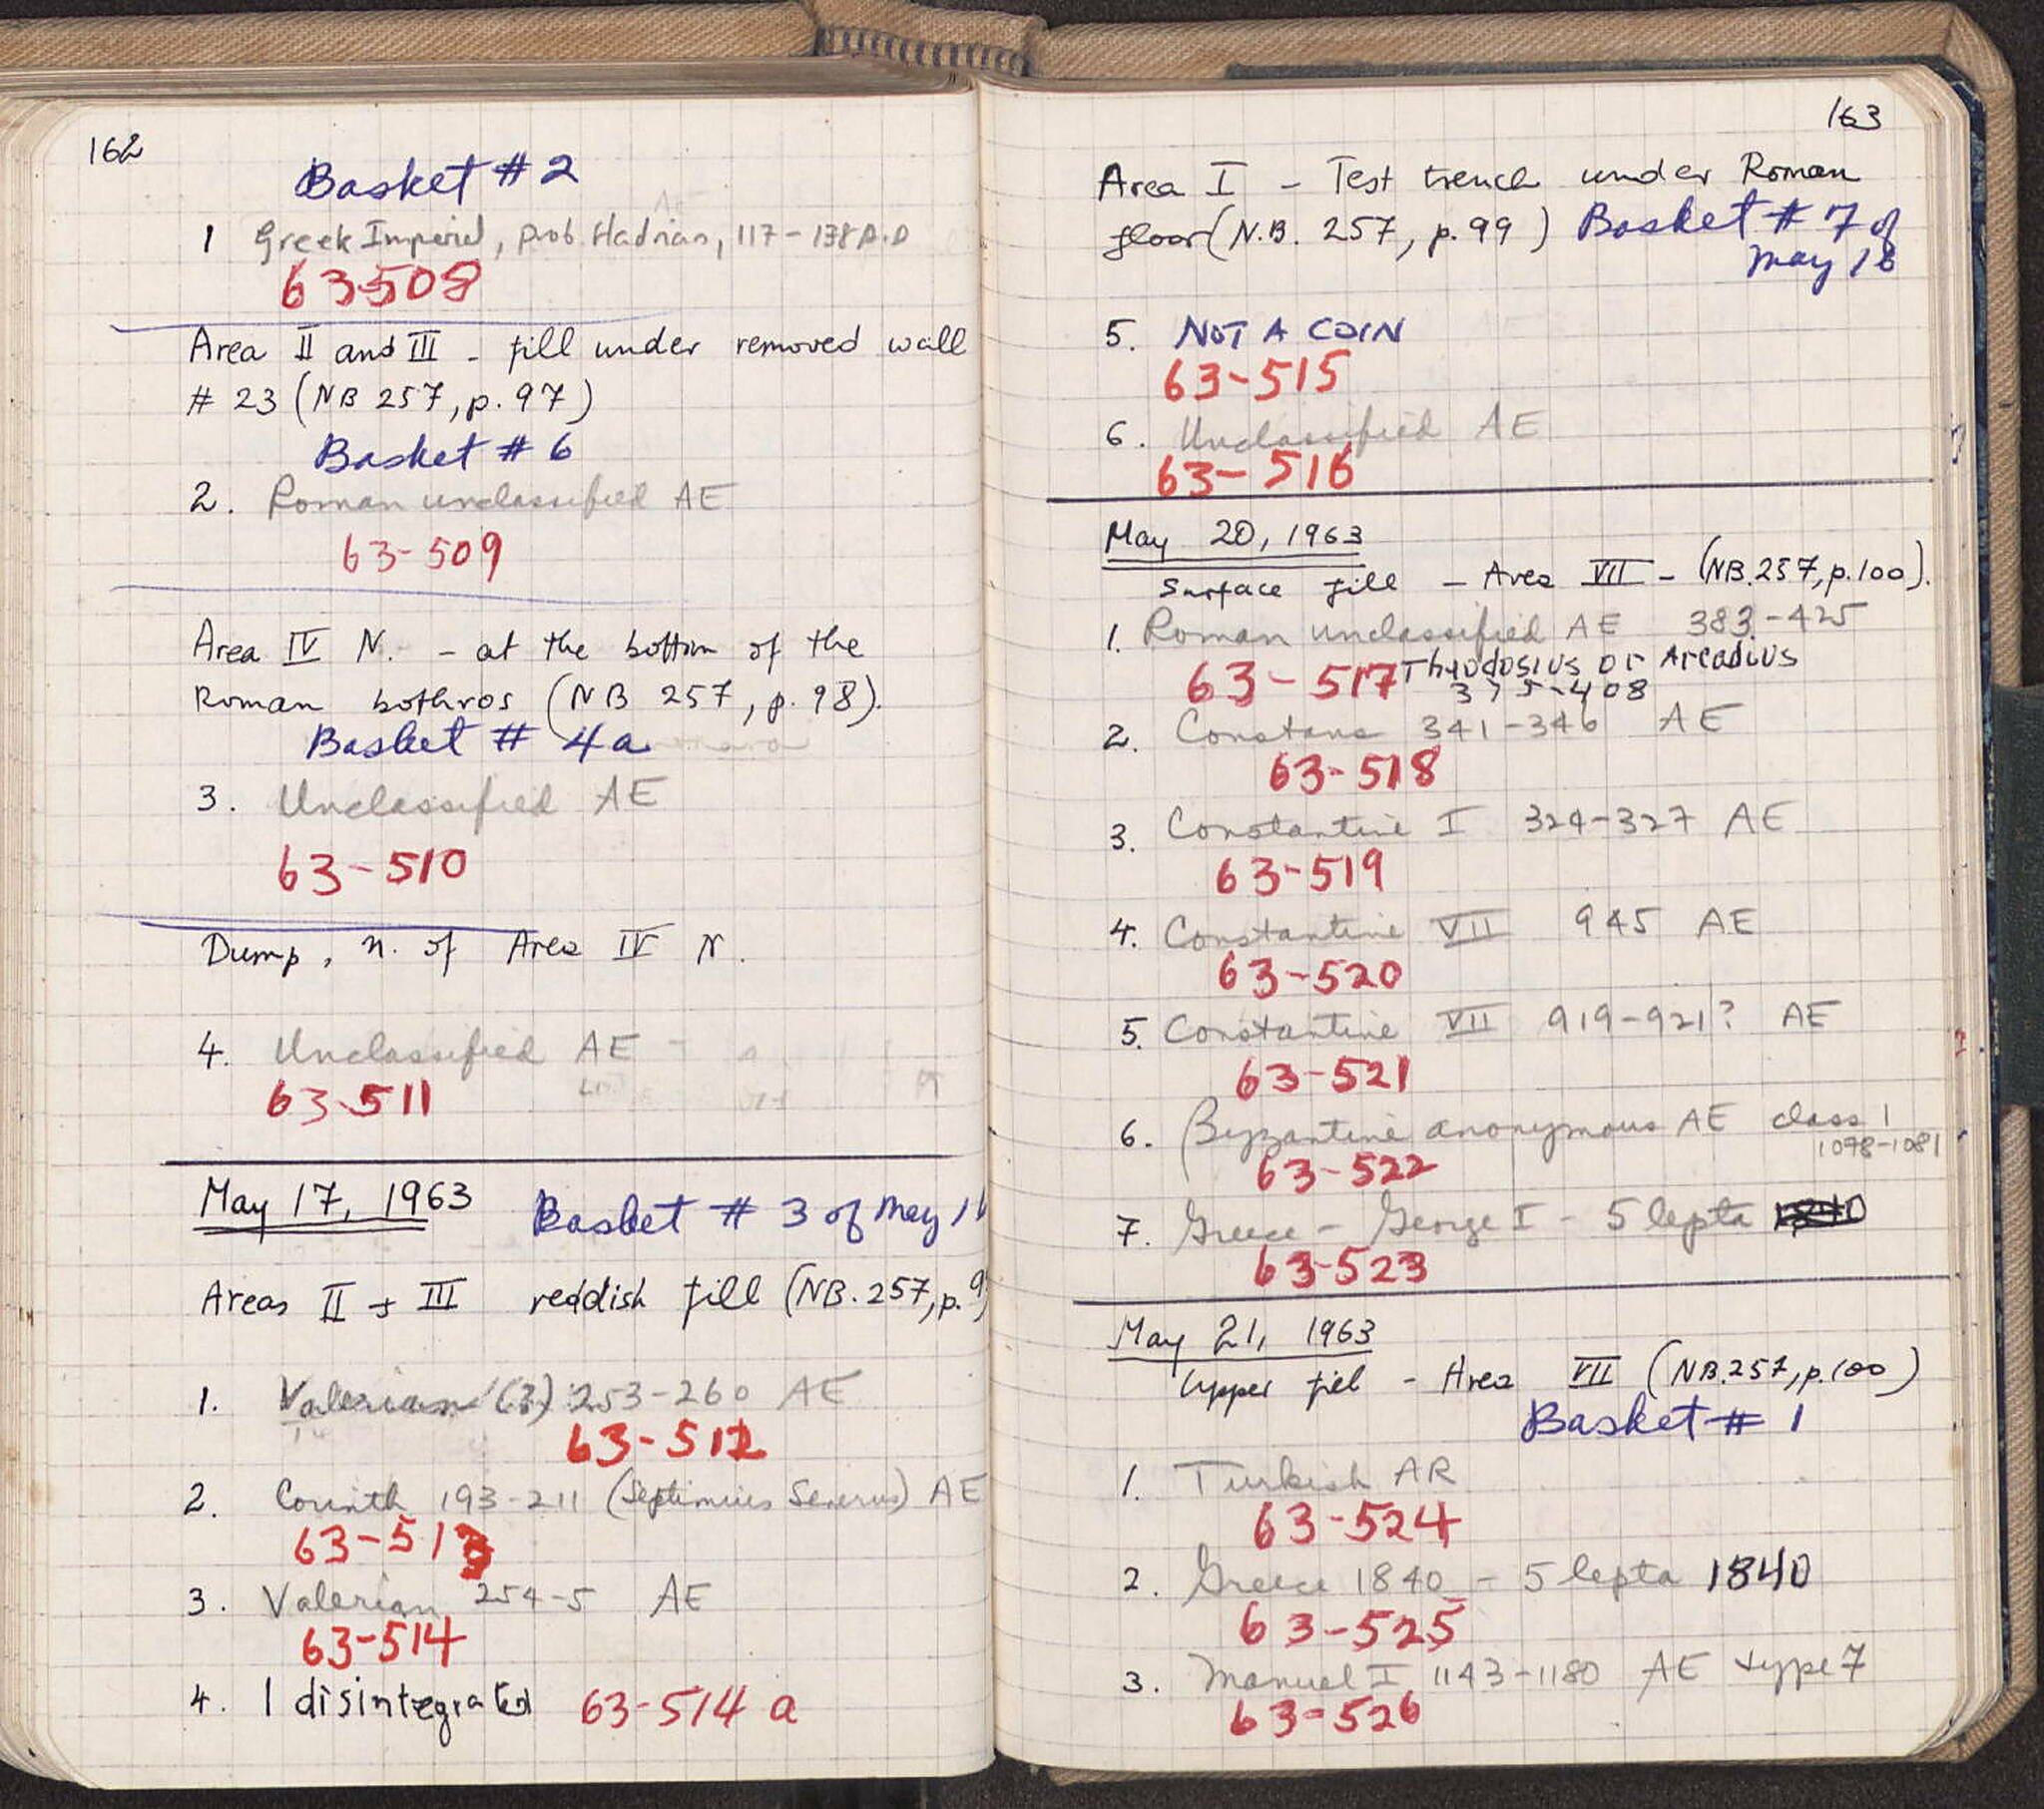 162
Basket # 2
1 Greek Imperial, prob. Hadrian, 117-138 A.D
63-508
Area II and III - fill under removed wall
# 23 (NB 257, p. 97)
Basket # 6
2. Roman unclassified AE
63-509
Area IV N. - at the bottom of the
Roman bothros (NB 257, p. 98).
Basket # 4a
3. Unclassified AE
63-510
Dump, n. of Area IV N.
4. Unclassified AE
63-511
May 17, 1963 Basket # 3 of May
Areas II + III reddish fill (NB. 257, p. 9
1. Valerian (?) 253-260 AE
63-512
2. Corinth 193-211 (Septimius Severus) AE
63-513
3. Valerian 254-5 AE
63-514
4. 1 disintegrated 63-514 a
163
Area I - Test trench under Roman
floor (N.B. 257, p. 99) Basket # 7 of
May 16
5. NOT A COIN
63-515
6. Unclassified AE
63-516
May 20, 1963
Surface fill - Area VII - (NB. 257, p. 100).
1. Roman unclassified AE 383-425
63-517 Theodosius or Arcadius
375-408
2. Constans 341-346 AE
63-518
3. Constantine I 324-327 AE
63-519
4. Constantine VII 945 AE
63-520
5. Constantine VII 919-921? AE
63-521
6. Byzantine anonymous AE class 1
1078-1081
63-522
7. Greece - George I - 5 lepta
63-523
May 21, 1963
Upper fill - Area VII (NB. 257, p. 100)
Basket # 1
1. Turkish AR
63-524
2. Greece 1840 - 5 lepta 1840
63-525
3. Manuel I 1143-1180 AE type 7
63-526